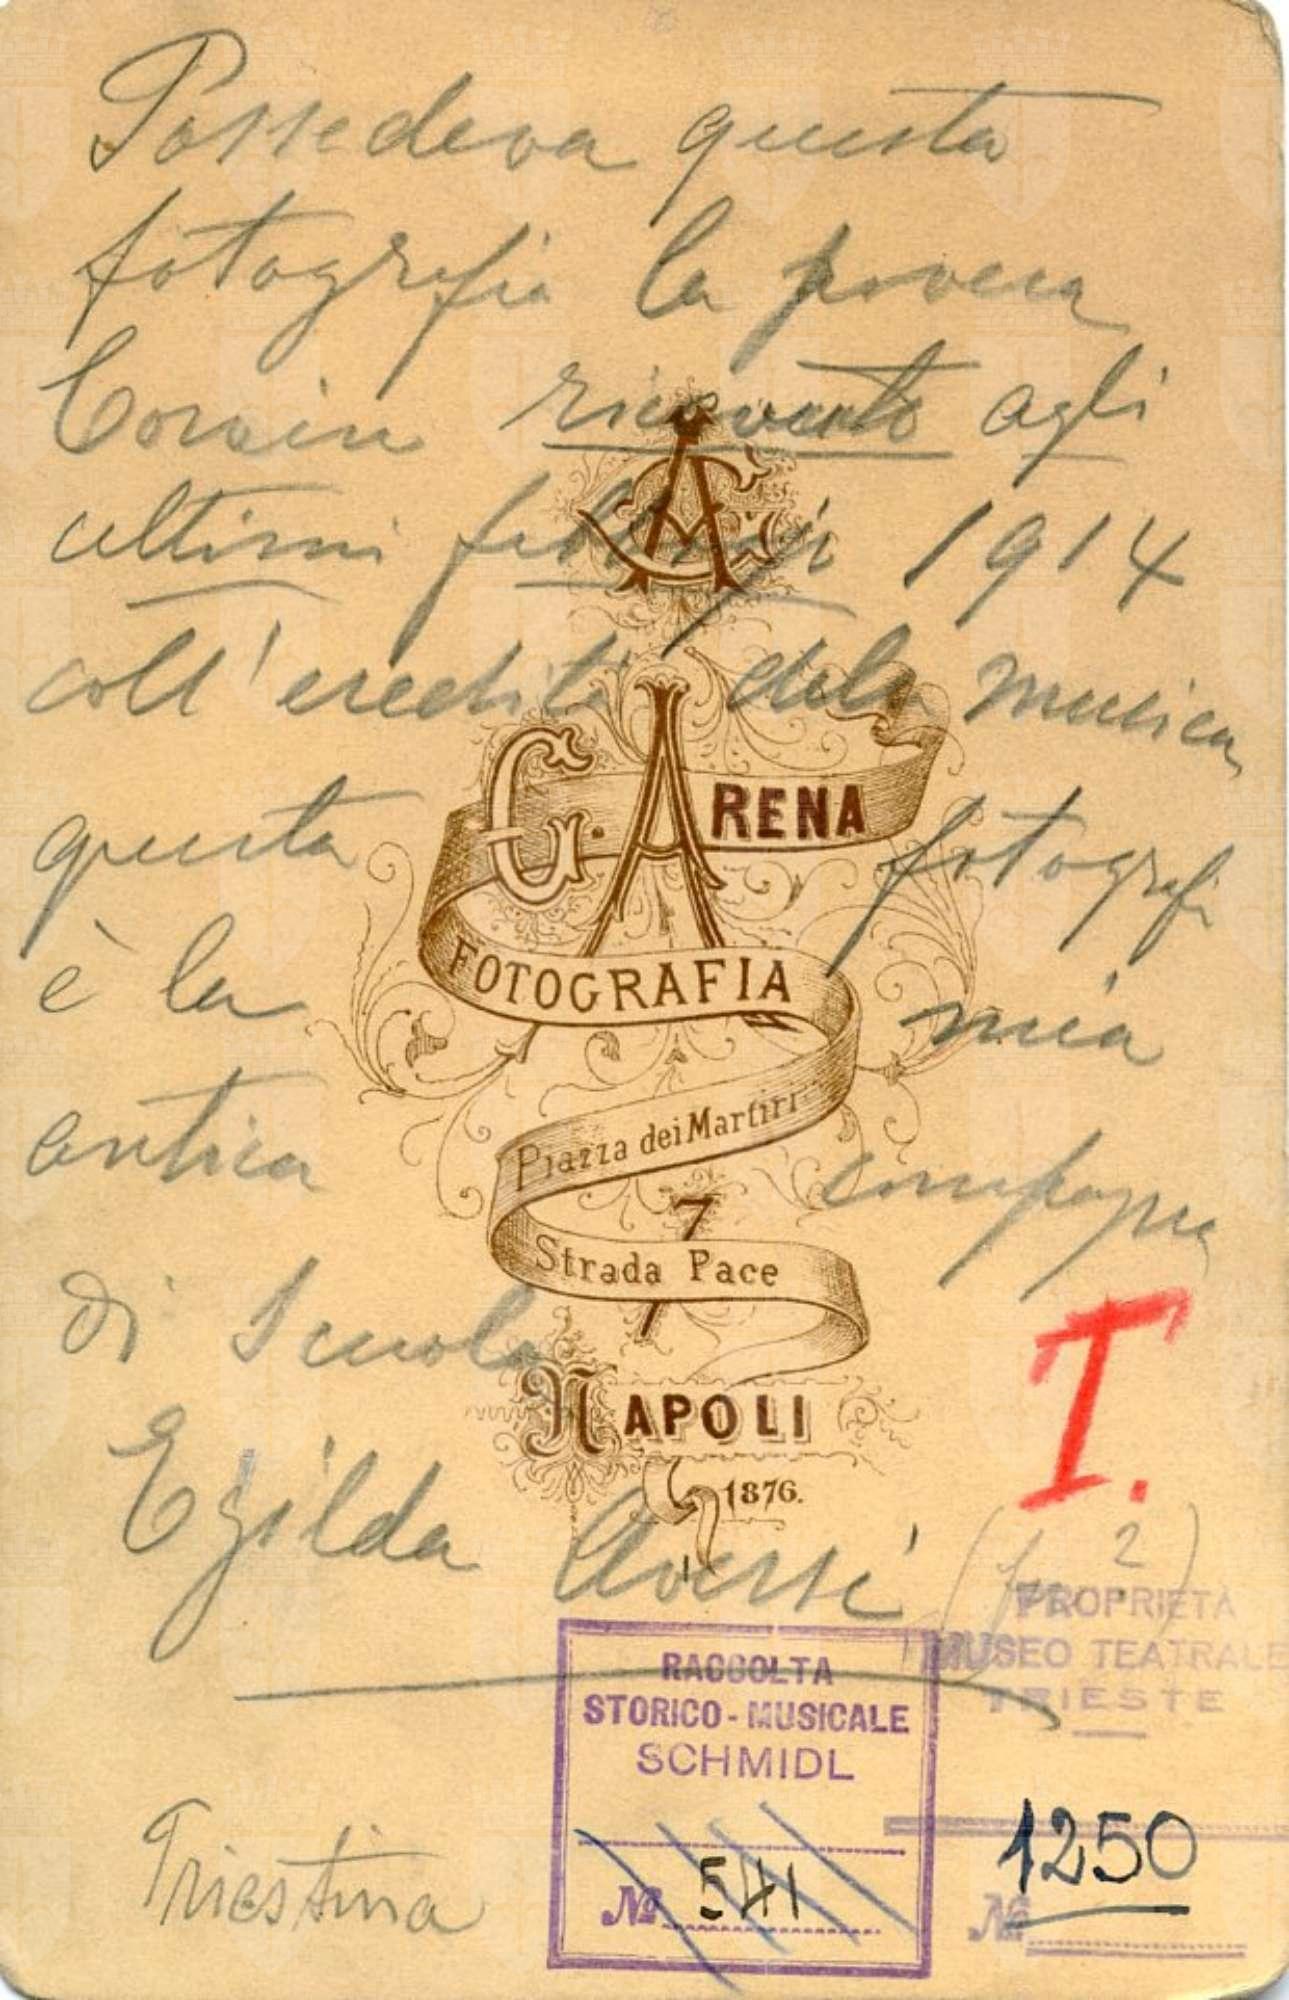 Possedeva questa
fotografia la povera
ricevuto agli
ultimi febbraio 1914
coll'eredità della musica
questa fotografi
è la mia
antica compagna
di Scuola
Egilda
G. ARENA
FOTOGRAFIA
Piazza dei Martiri
7
Strada Pace
NAPOLI
1876.
T.
2
PROPRIETÀ
MUSEO TEATRALE
TRIESTE
RACCOLTA
STORICO-MUSICALE
SCHMIDL
Nº 541
Nº 1250
Triestina